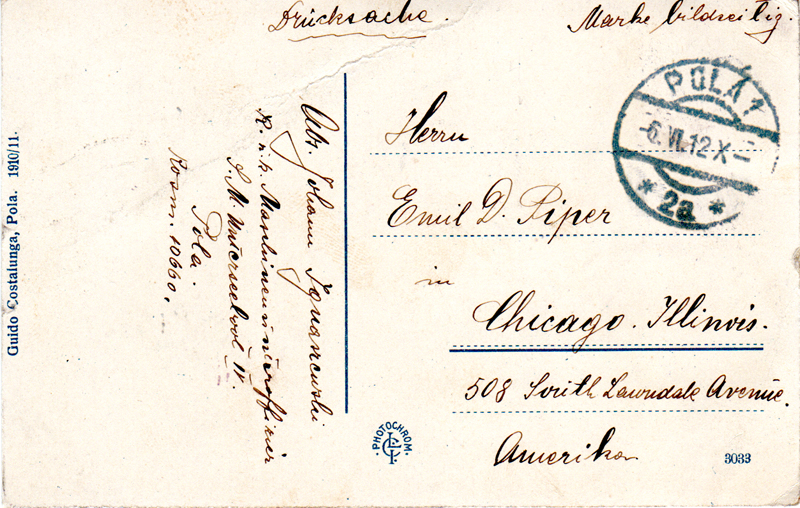 Drucksache.
Marke bildseitig.
POLA 1
-6.VI.12.X-
* 2a *
Herrn
Emil D. Piper
in
Chicago. Illinois.
508 South Lawndale Avenue.
Amerika
Abs. Johann
K. u. k.
S. M. Unterseeboot IV.
Pola.
Kosm. 10660.
Guido Costalunga, Pola. 1910/11.
PHOTOCHROM.
3033